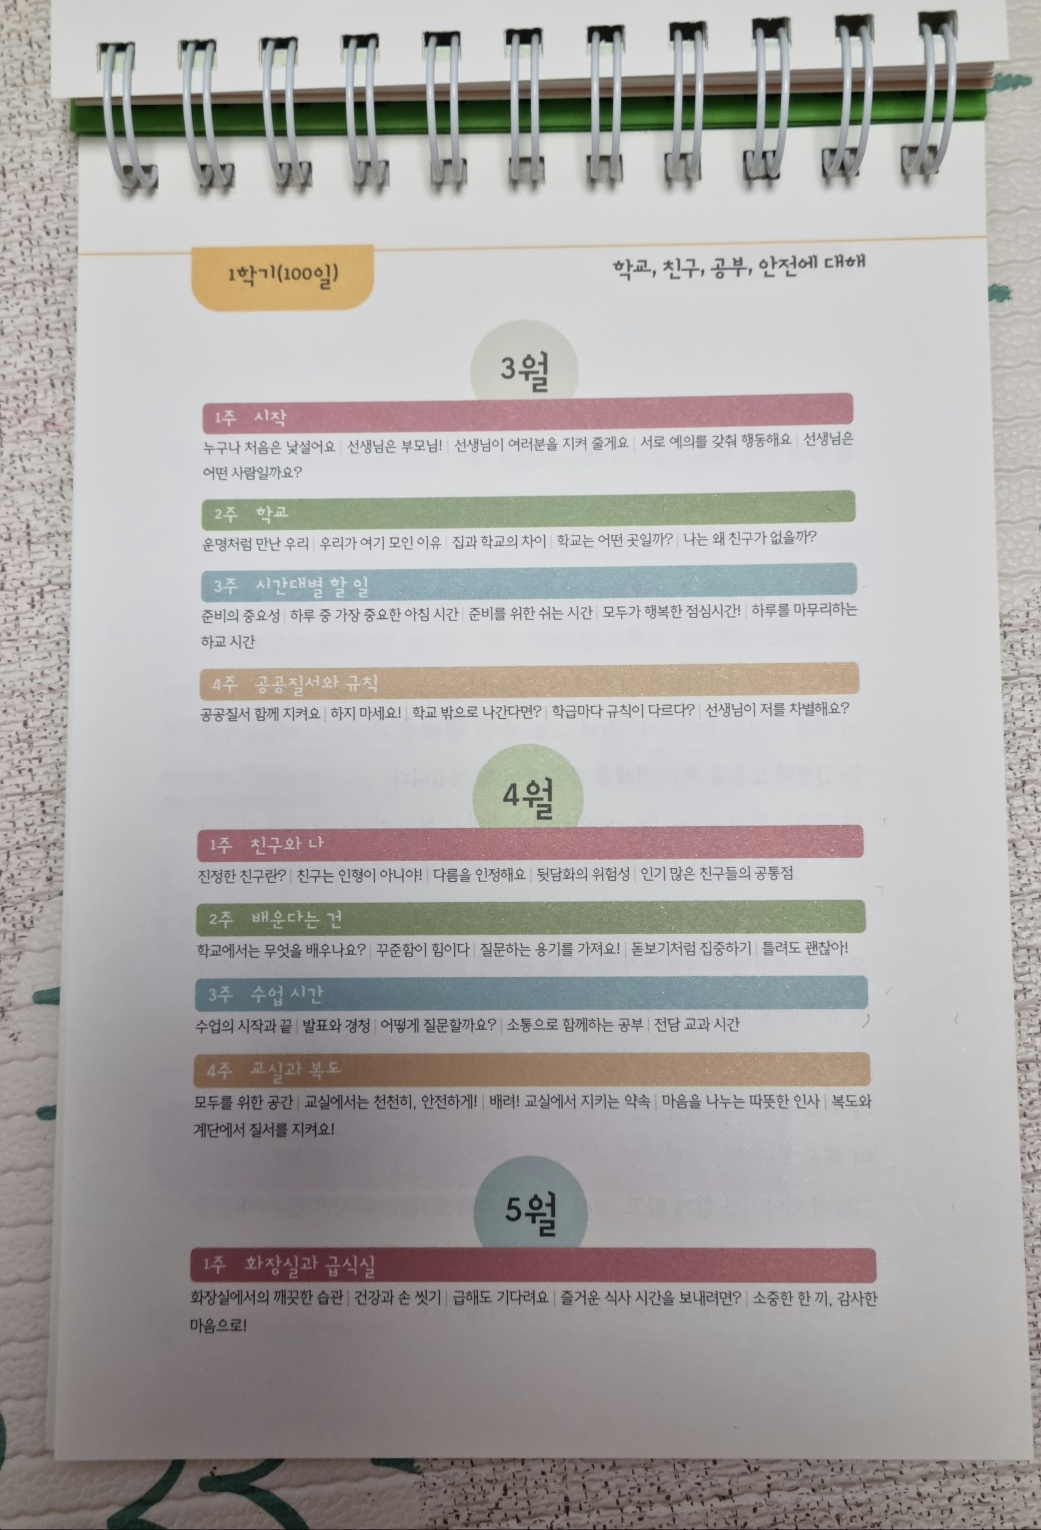 1학기(100일)
학교, 친구, 공부, 안전에 대해
3월
1주 시작
누구나 처음은 낯설어요 | 선생님은 부모님! | 선생님이 여러분을 지켜 줄게요 | 서로 예의를 갖춰 행동해요 | 선생님은
어떤 사람일까요?
2주 학교
운명처럼 만난 우리 | 우리가 여기 모인 이유 | 집과 학교의 차이 | 학교는 어떤 곳일까? | 나는 왜 친구가 없을까?
3주 시간대별 할 일
준비의 중요성 | 하루 중 가장 중요한 아침 시간 | 준비를 위한 쉬는 시간 | 모두가 행복한 점심시간! | 하루를 마무리하는
하교 시간
4주 공공질서와 규칙
공공질서 함께 지켜요 | 하지 마세요! | 학교 밖으로 나간다면? | 학급마다 규칙이 다르다? | 선생님이 저를 차별해요?
4월
1주 친구와 나
진정한 친구란? | 친구는 인형이 아니야! | 다름을 인정해요 | 뒷담화의 위험성 | 인기 많은 친구들의 공통점
2주 배운다는 건
학교에서는 무엇을 배우나요? | 꾸준함이 힘이다 | 질문하는 용기를 가져요! | 돋보기처럼 집중하기 | 틀려도 괜찮아!
3주 수업 시간
수업의 시작과 끝 | 발표와 경청 | 어떻게 질문할까요? | 소통으로 함께하는 공부 | 전담 교과 시간
4주 교실과 복도
모두를 위한 공간 | 교실에서는 천천히, 안전하게! | 배려! 교실에서 지키는 약속 | 마음을 나누는 따뜻한 인사 | 복도와
계단에서 질서를 지켜요!
5월
1주 화장실과 급식실
화장실에서의 깨끗한 습관 | 건강과 손 씻기 | 급해도 기다려요 | 즐거운 식사 시간을 보내려면? | 소중한 한 끼, 감사한
마음으로!